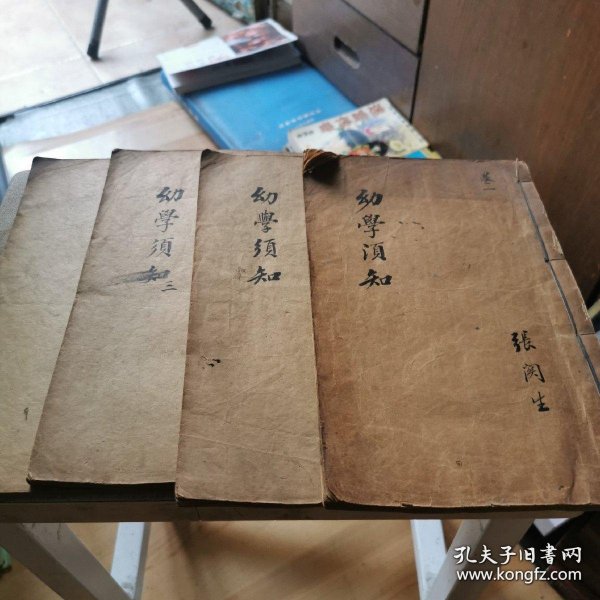 幼學須知
三
幼學須知
幼學須知
卷一
張闵生
孔夫子旧書网
www.kongfz.com